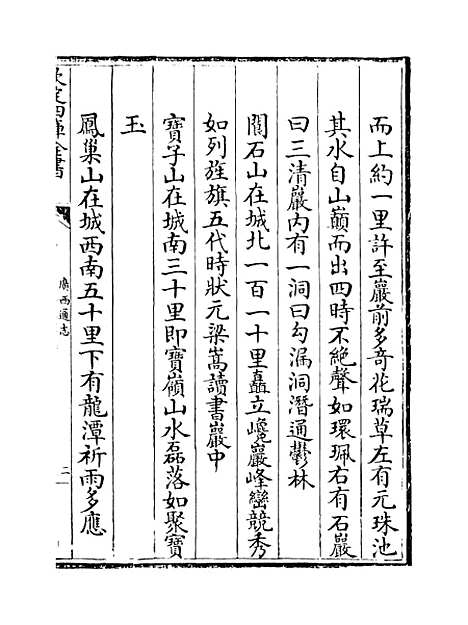 而上約一里許至巖前多奇花瑞草左有元珠池
其水自山巔而出四時不絶聲如環珮右有石巖
曰三清巖内有一洞曰勾漏洞潛通鬱林
閣石山在城北一百一十里矗立巉巖峰巒競秀
如列旌旗五代時狀元梁嵩讀書巖中
寶子山在城南三十里即寶嶺山水磊落如聚寶
玉
鳳巢山在城西南五十里下有龍潭祈雨多應
欽定四庫全書
廣西通志
二